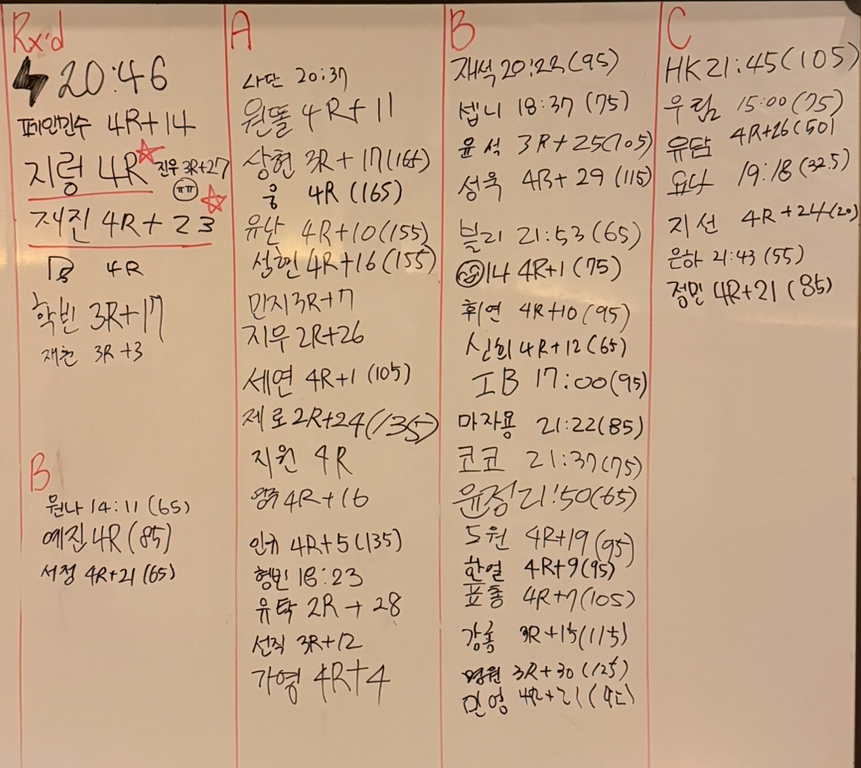 Rx'd
20:46
페인민수 4R+14
지렁 4R
진우 3R+27
ㅠㅠ
재진 4R+23
4R
학빈 3R+17
재훈 3R+3
B
원나 14:11 (65)
예진 4R (85)
서정 4R+21 (65)
A
사단 20:37
원똘 4R+11
상현 3R+17 (165)
웅 4R (165)
유난 4R+10 (155)
석현 4R+16 (155)
민지 3R+7
지우 2R+26
세연 4R+1 (105)
제로 2R+24 (135)
지원 4R
4R+16
인규 4R+5 (135)
형빈 18:23
유탁 2R+28
선직 3R+12
가영 4R+4
B
재석 20:22 (95)
셉니 18:37 (75)
윤석 3R+25 (105)
성욱 4R+29 (115)
블리 21:53 (65)
14 4R+1 (75)
휘연 4R+10 (95)
신희 4R+12 (65)
IB 17:00 (95)
마자용 21:22 (85)
코코 21:37 (75)
윤정 21:50 (65)
5원 4R+19 (95)
한얼 4R+9 (95)
표홍 4R+7 (105)
강홍 3R+15 (115)
명원 3R+30 (125)
민영 4R+21
C
HK 21:45 (105)
우림 15:00 (75)
유담 4R+26 (50)
요나 19:18 (32.5)
지선 4R+24 (20)
은하 21:43 (55)
정민 4R+21 (85)